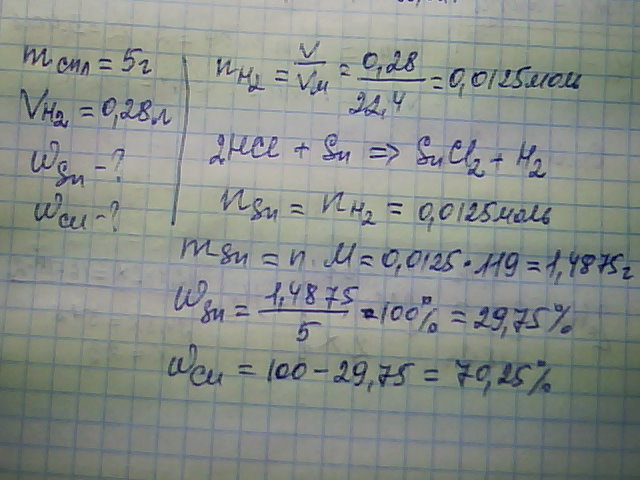 mспл = 5г
VH₂ = 0,28л
WSn - ?
WCu - ?
nH₂ = V/Vм = 0,28/22,4 = 0,0125моль
2HCl + Sn => SnCl₂ + H₂
nSn = nH₂ = 0,0125моль
mSn = n · M = 0,0125 · 119 = 1,4875г
WSn = 1,4875/5 · 100% = 29,75%
WCu = 100 - 29,75 = 70,25%